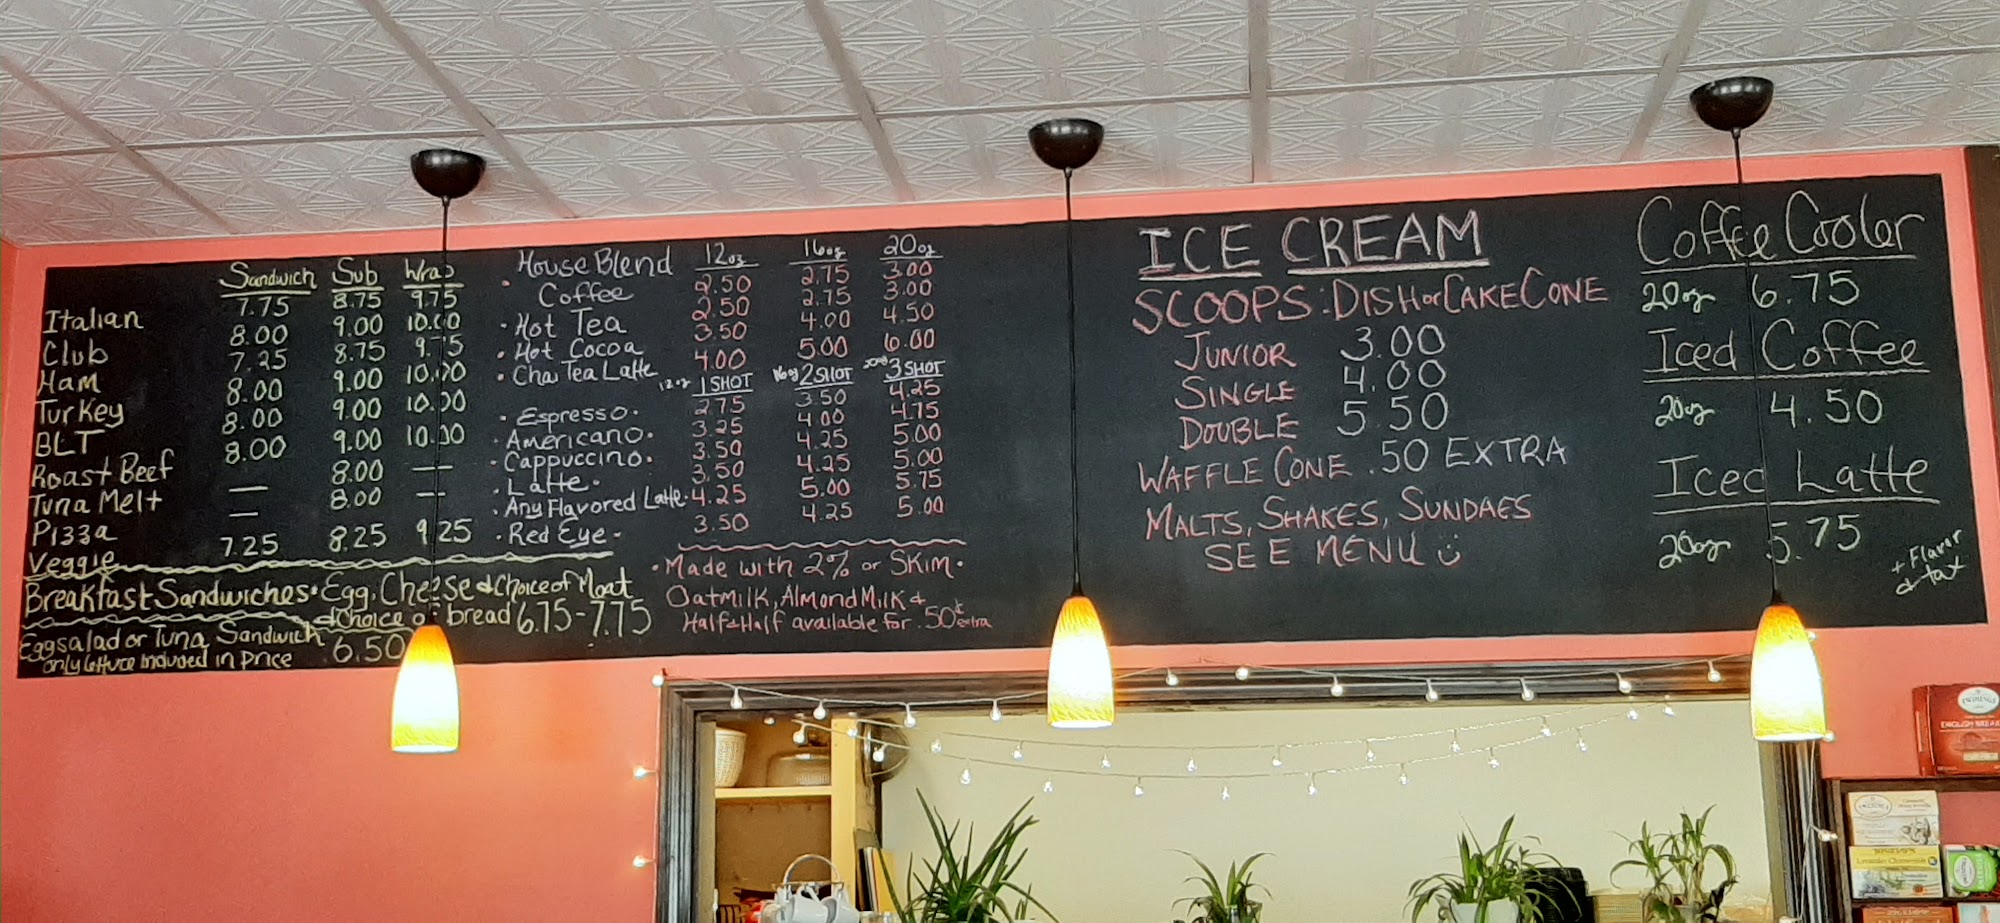 Sandwich Sub Wrap
Italian 7.75 8.75 9.75
Club 8.00 9.00 10.00
Ham 7.25 8.75
Turkey 8.00 9.00 10.00
BLT 8.00 9.00 10.00
Roast Beef 8.00 9.00 10.00
Tuna Melt — 8.00 —
Pizza — 8.00 —
Veggie 7.25 8.25 9.25
Breakfast Sandwiches • Egg, Cheese & Choice of Meat
& Choice of bread 6.75-7.75
Eggsalad or Tuna Sandwich 6.50
only lettuce included in price
12oz 16oz 20oz
• House Blend
Coffee 2.50 2.75 3.00
• Hot Tea 2.50 2.75 3.00
• Hot Cocoa 3.50 4.00 4.50
• Chai Tea Latte 4.00 5.00 6.00
12oz 1 SHOT 16oz 2 SHOT 20oz 3 SHOT
• Espresso • 2.75 3.50 4.25
• Americano • 3.25 4.00 4.75
• Cappuccino • 3.50 4.25 5.00
• Latte • 3.50 4.25 5.00
• Any Flavored Latte • 4.25 5.00 5.75
• Red Eye • 3.50 4.25 5.00
• Made with 2% or Skim •
Oatmilk, Almond Milk &
Half & Half available for .50¢ extra
ICE CREAM
SCOOPS: DISH or CAKE CONE
JUNIOR 3.00
SINGLE 4.00
DOUBLE 5.50
WAFFLE CONE .50 EXTRA
MALTS, SHAKES, SUNDAES
SEE MENU
Coffee Cooler
20oz 6.75
Iced Coffee
20oz 4.50
Iced Latte
20oz 5.75
+ Flavor
& tax
TWININGS